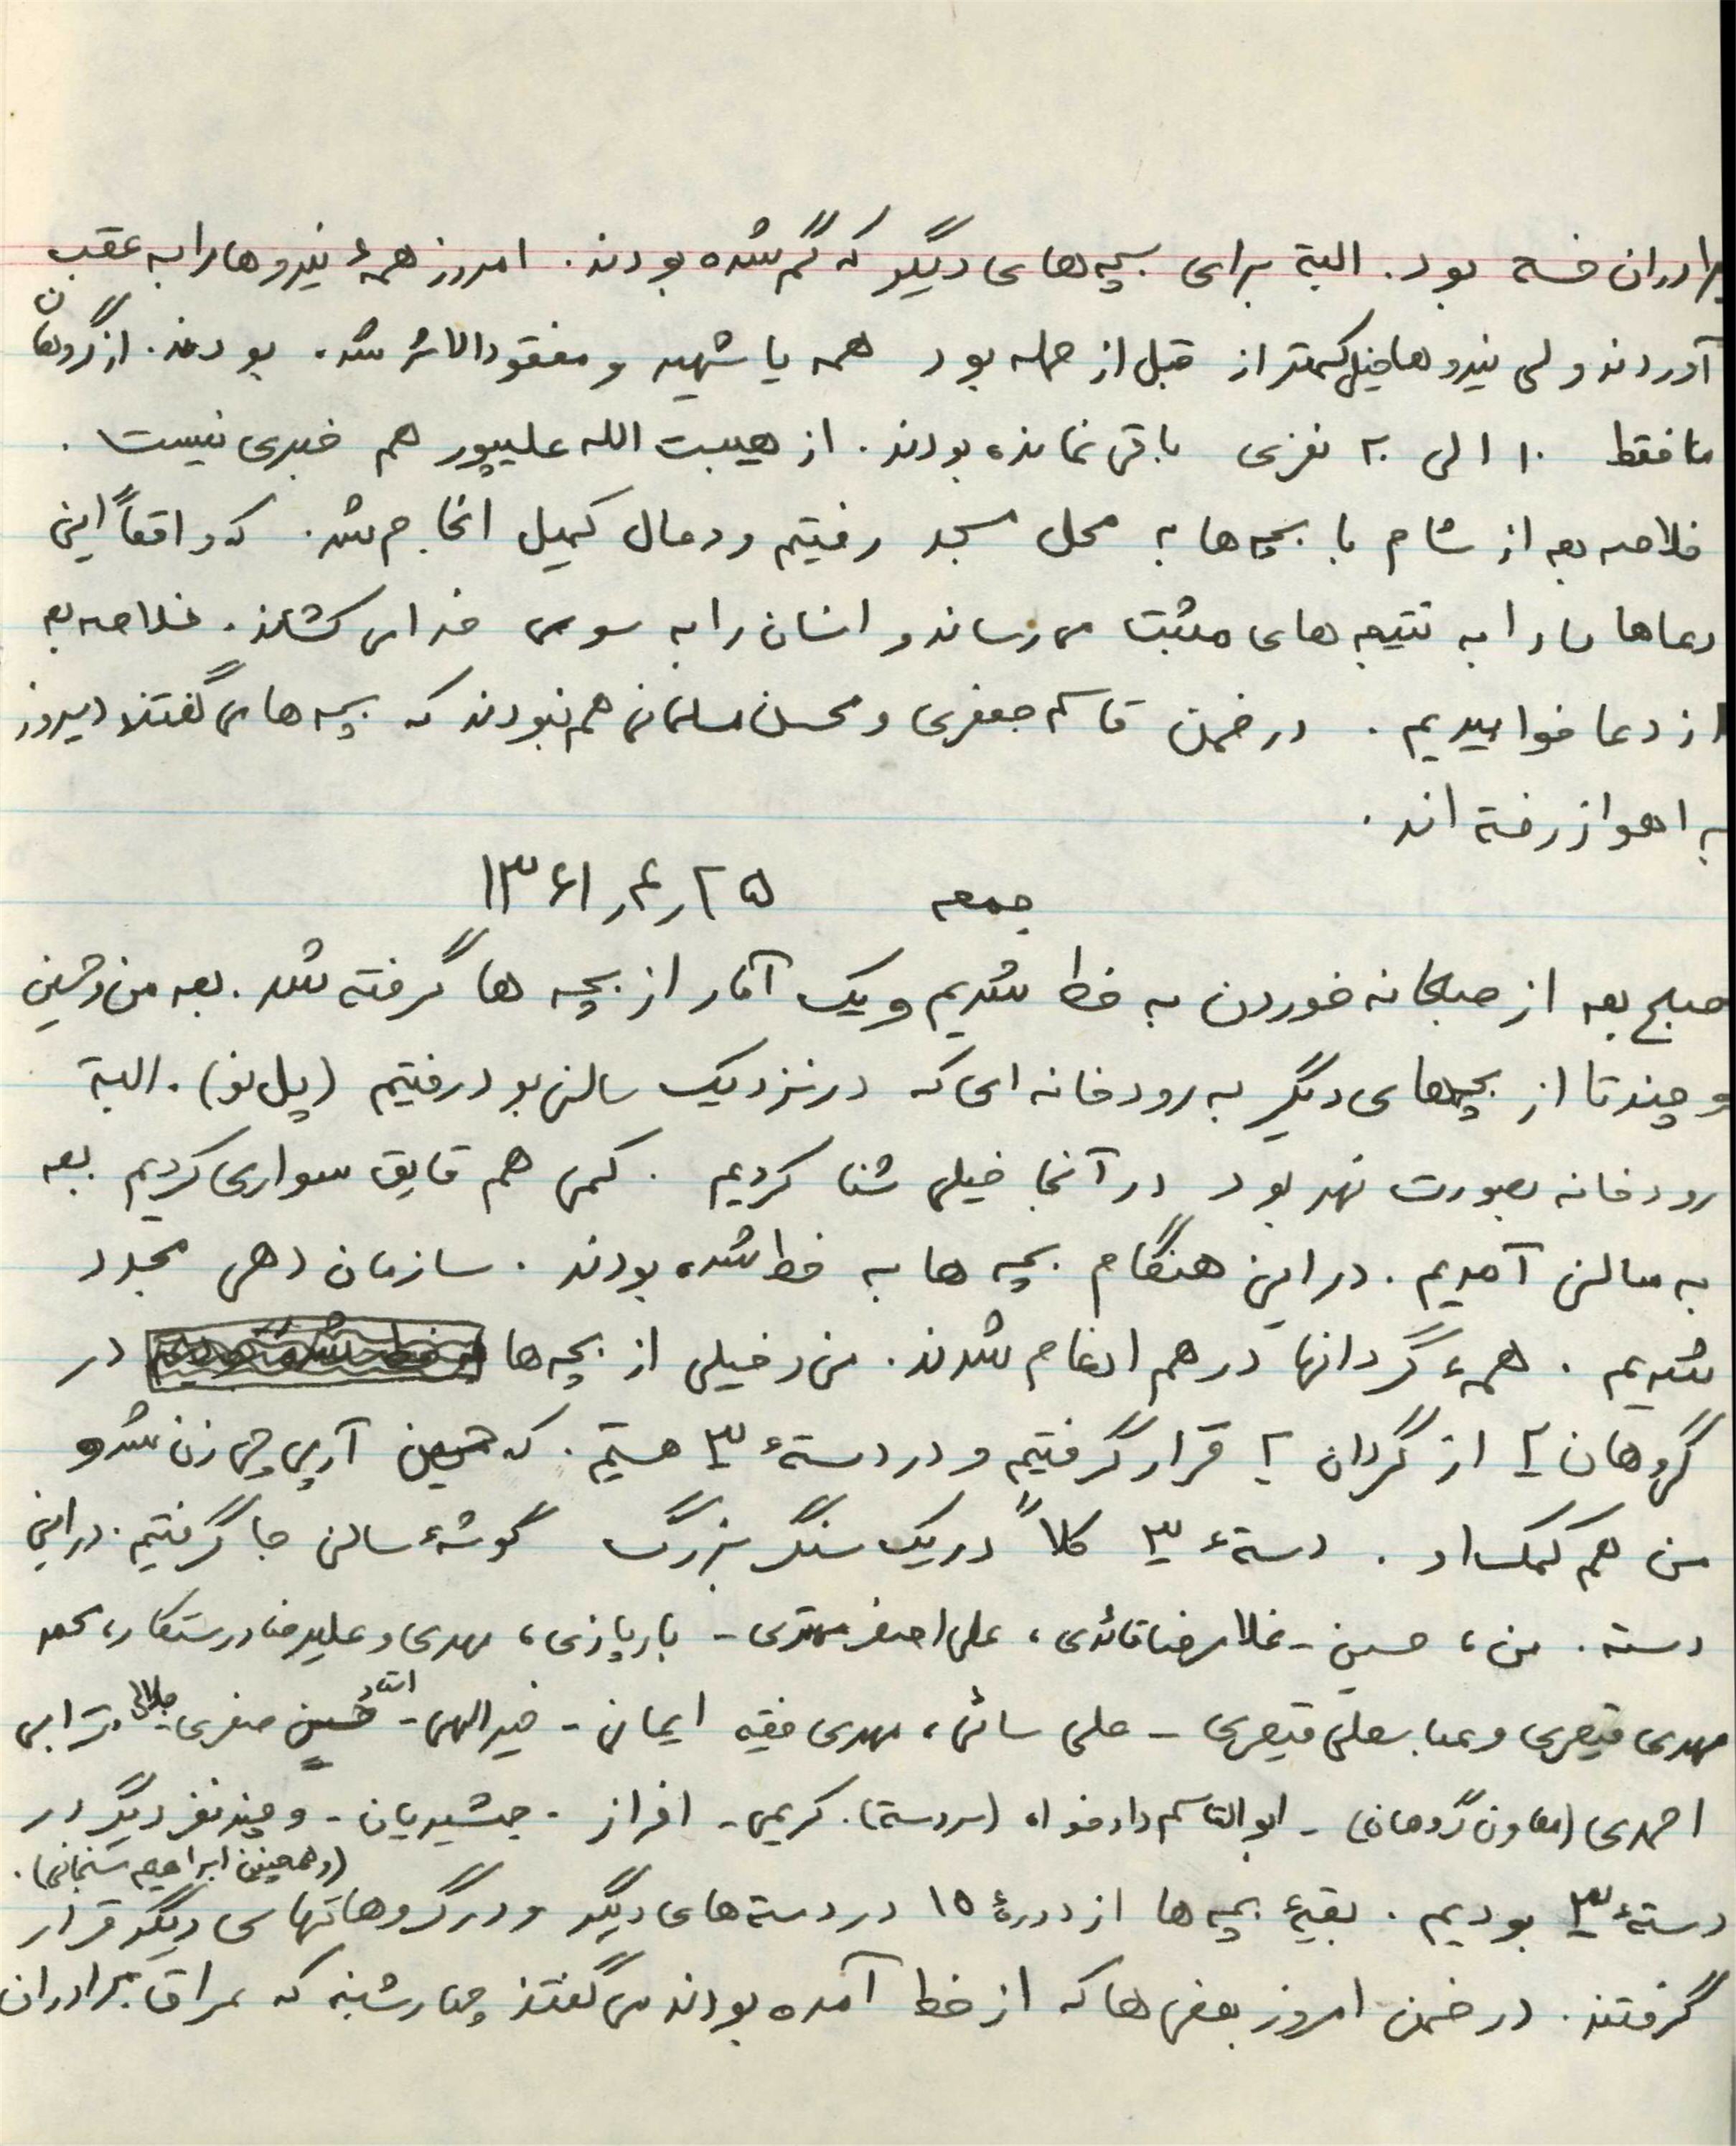 برادران خسته بود. البته برای بچه‌های دیگر که گم شده بودند. امروز همهٔ نیروها را به عقب
آوردند ولی نیروها خیلی کمتر از قبل از حمله بود همه یا شهید و مفقودالاثر شده بودند. از گروهان
ما فقط ۱۰ الی ۲۰ نفری باقی نمانده بودند. از هیبت الله علیپور هم خبری نیست.
خلاصه بعد از شام با بچه‌ها به محل مسجد رفتیم و دعای کمیل انجام شد. که واقعاً این
دعاها ما را به نتیجه‌های مثبت می‌رساند و انسان را به سوی خدا می‌کشاند. خلاصه بعد
از دعا خوابیدیم. در ضمن قاسم جعفری و محسن سلمانی هم نبودند که بچه‌ها می‌گفتند دیروز
به اهواز رفته‌اند.
جمعه ۲۵ر۴ر۱۳۶۱
صبح بعد از صبحانه خوردن به خط شدیم و یک آمار از بچه ها گرفته شد. بعد من و حسین
و چندتا از بچه‌های دیگر به رودخانه ای که در نزدیک سالن بود رفتیم (پل نو). البته
رودخانه بصورت نهر بود در آنجا خیلی شنا کردیم. کمی هم قایق سواری کردیم بعد
به سالن آمدیم. در این هنگام بچه ها به خط شده بودند. سازمان دهی مجدد
شدیم. همهٔ گردانها در هم ادغام شدند. من و خیلی از بچه‌ها در
گروهان ۲ از گردان ۲ قرار گرفتیم و در دستهٔ ۳ هستیم. که حسین آرپی جی زن شد و
من هم کمک او. دستهٔ ۳ کلاً در یک سنگر بزرگ گوشهٔ سالن جا گرفتیم. در این
دسته. من، حسین - غلامرضا قائدی، علی اصغر مهتری - بارپازی، مهدی و علیرضا درستکار، محمد
مهدی قیصری و عباسعلی قیصری - علی سائی، مهدی فقیه ایمانی - خیرالهی - استاد حسین صفری - جلالی، ترابی
احمدی (معاون گروهان) - ابوالقاسم دادخواه (سردسته). کریمی - افراز - جمشیدیان - و چند نفر دیگر در
(و همچنین ابراهیم سنجانی).
دستهٔ ۳ بودیم. بقیهٔ بچه ها از دورهٔ ۱۵ در دسته‌های دیگر و در گروهانهای دیگر قرار
گرفتند. در ضمن امروز بعضی ها که از خط آمده بودند می‌گفتند چهارشنبه که عراق برادران